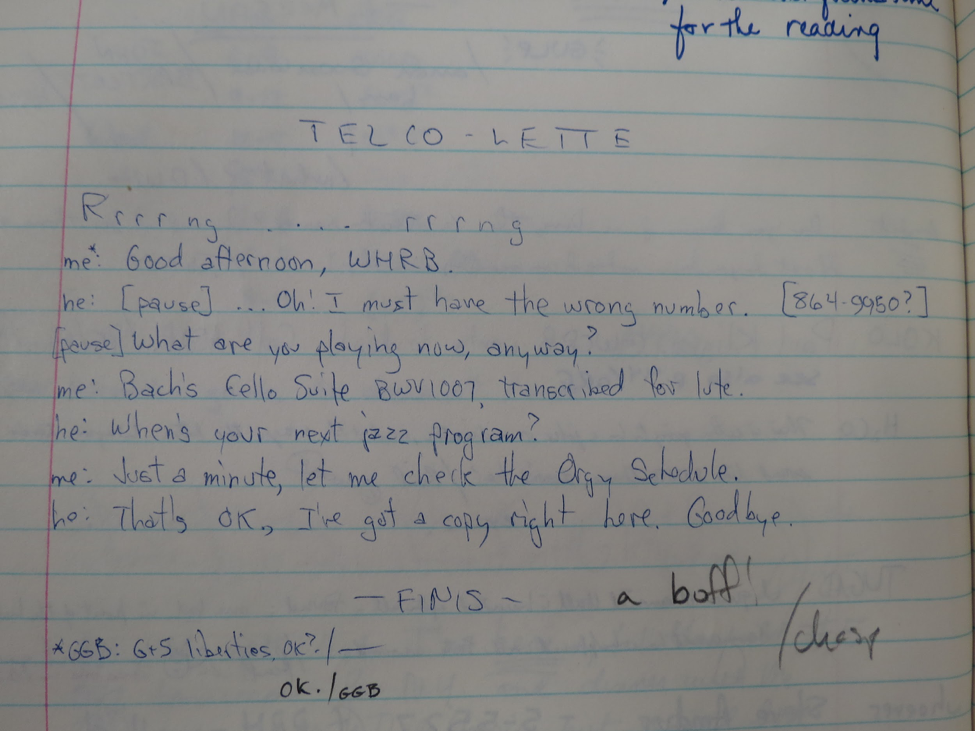 for the reading
TELCO-LETTE
Rrrrng ..... rrrng
me*: Good afternoon, WHRB.
he: [pause] ... Oh! I must have the wrong number. [864-9950?]
[pause] What are you playing now, anyway?
me: Bach's Cello Suite BWV1007, transcribed for lute.
he: When's your next jazz program?
me: Just a minute, let me check the Orgy Schedule.
he: That's OK, I've got a copy right here. Goodbye.
— FINIS —
a boff!
/chasp
*GGB: G+S liberties, OK?/—
OK./GGB